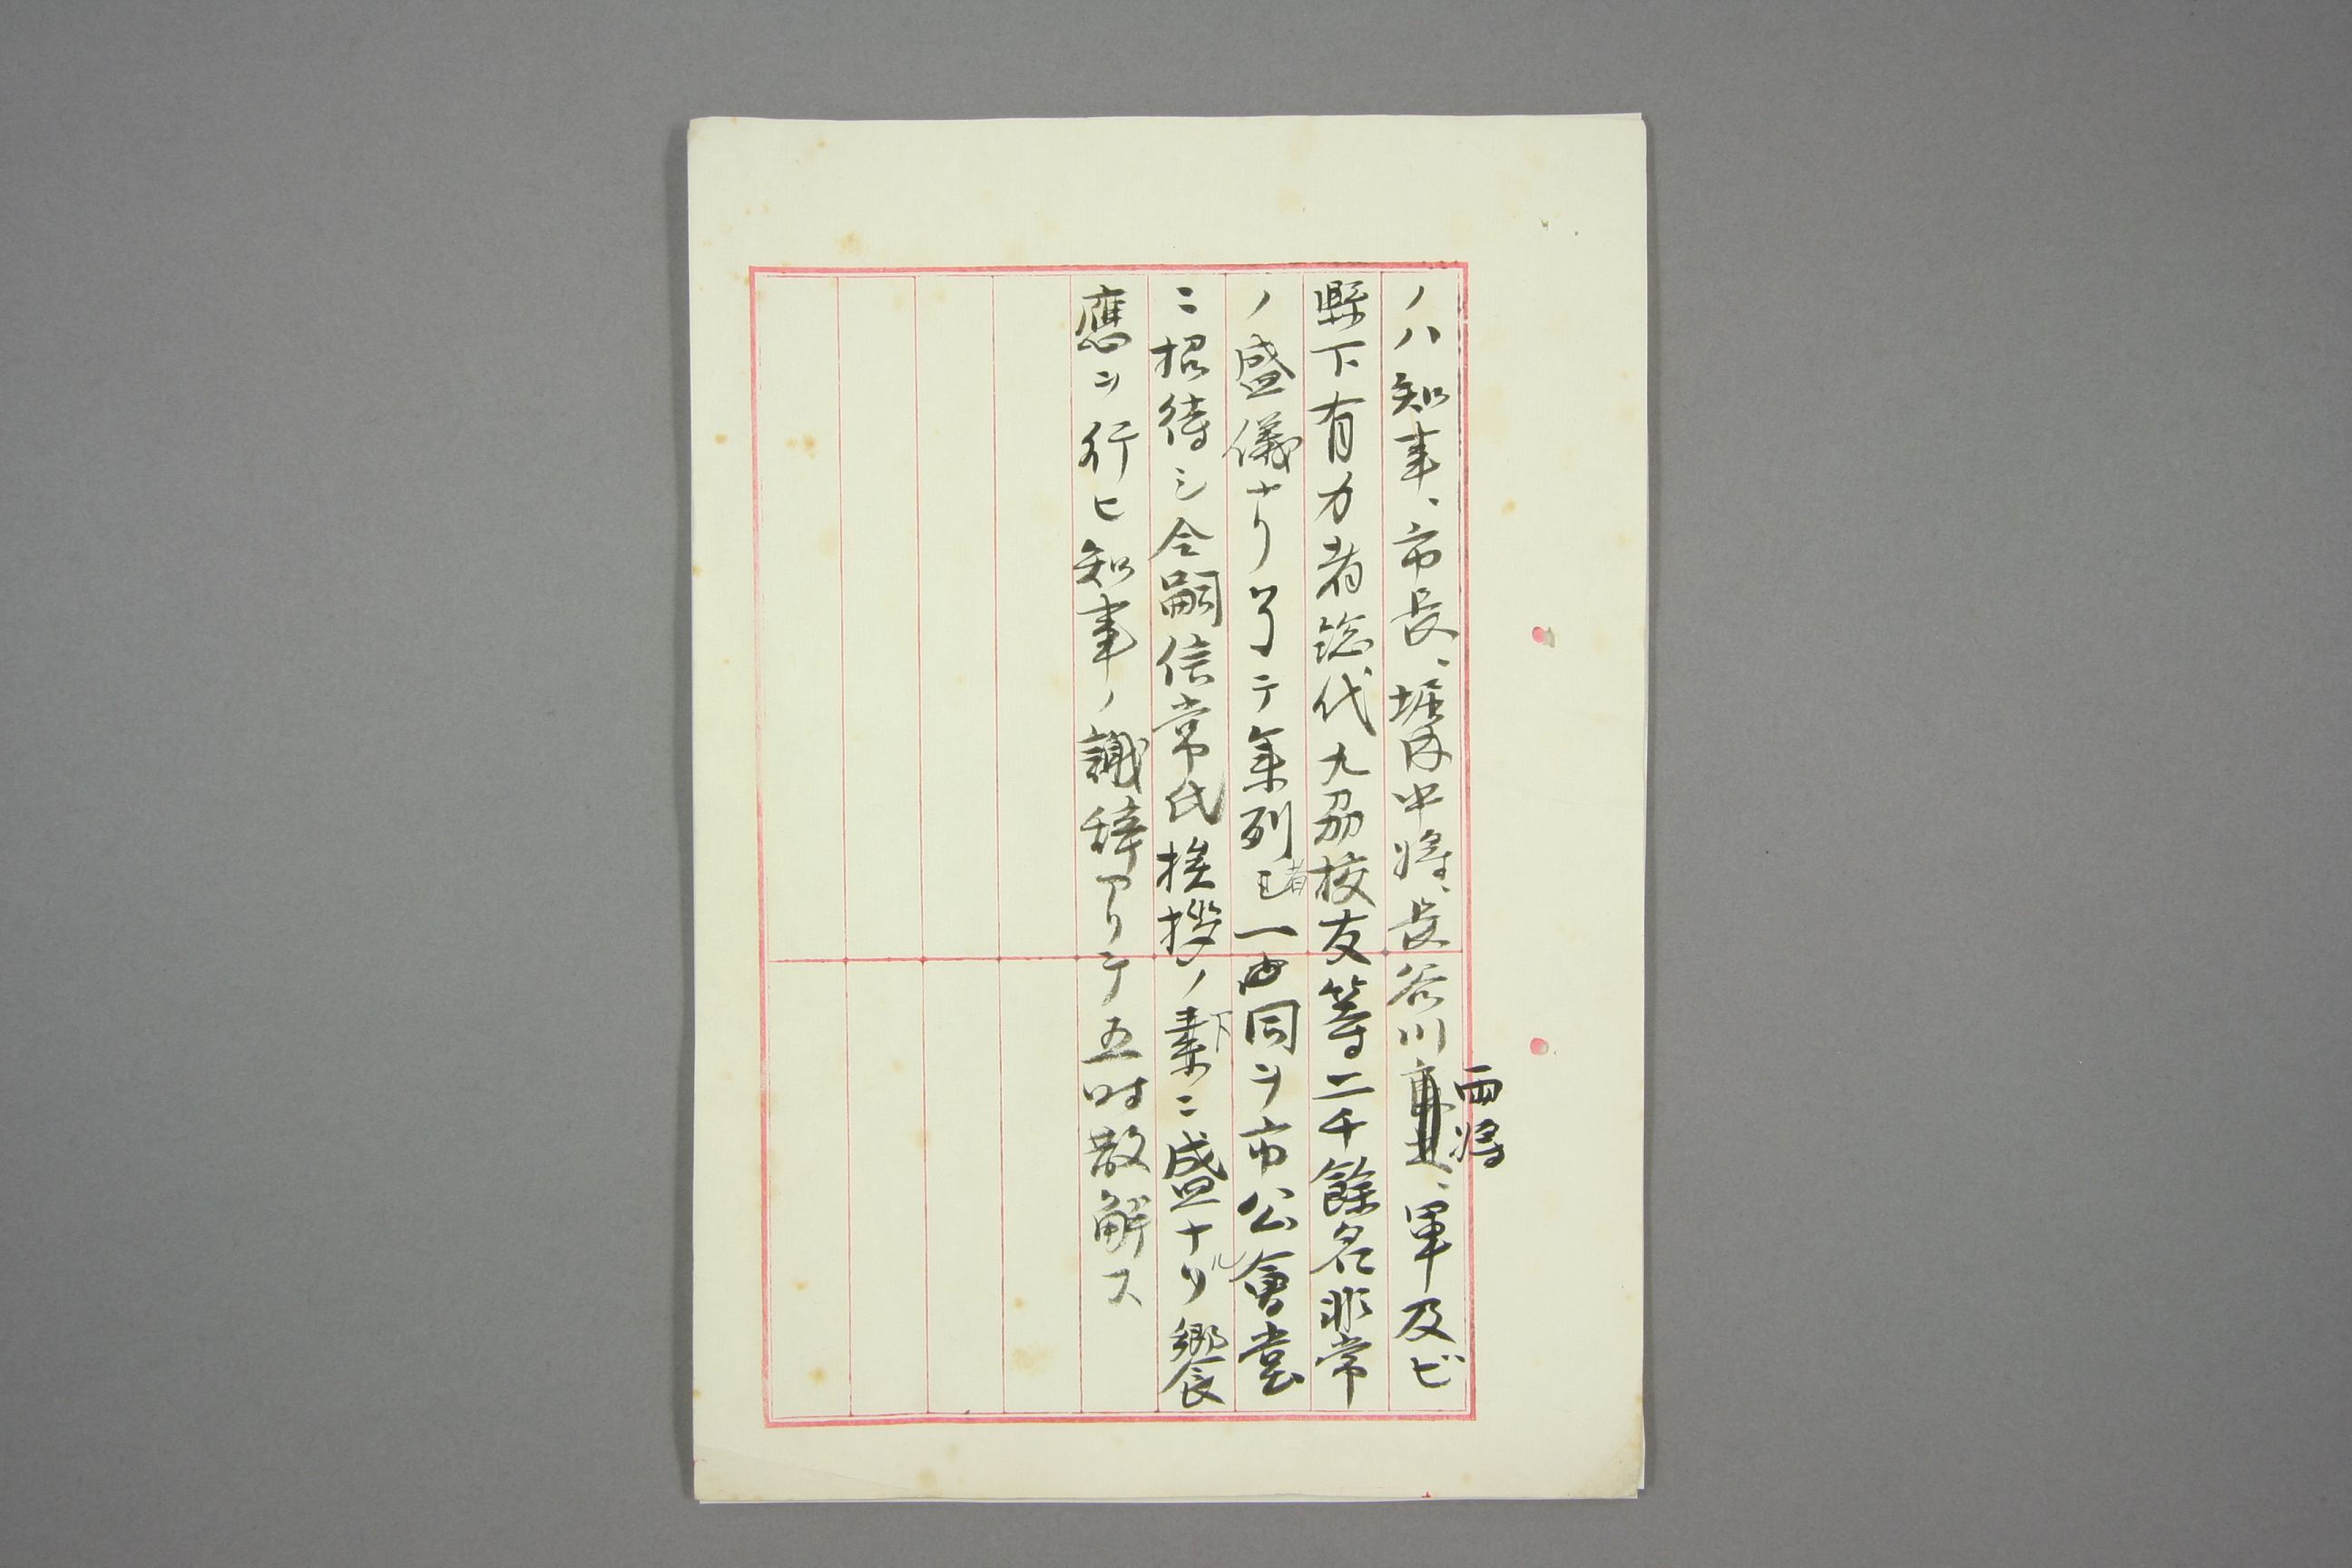 ノハ知事、市長、堀内中將、長谷川両将、軍及ビ
縣下有力者総代九州校友等二千餘名非常
ノ盛儀ナリ了テ年列者一同ヲ市公會堂
ニ招待シ令嗣信常氏挨拶ノ下ニ盛ナル饗
應ヲ行ヒ知事ノ謝辞アリテ五時散解ス